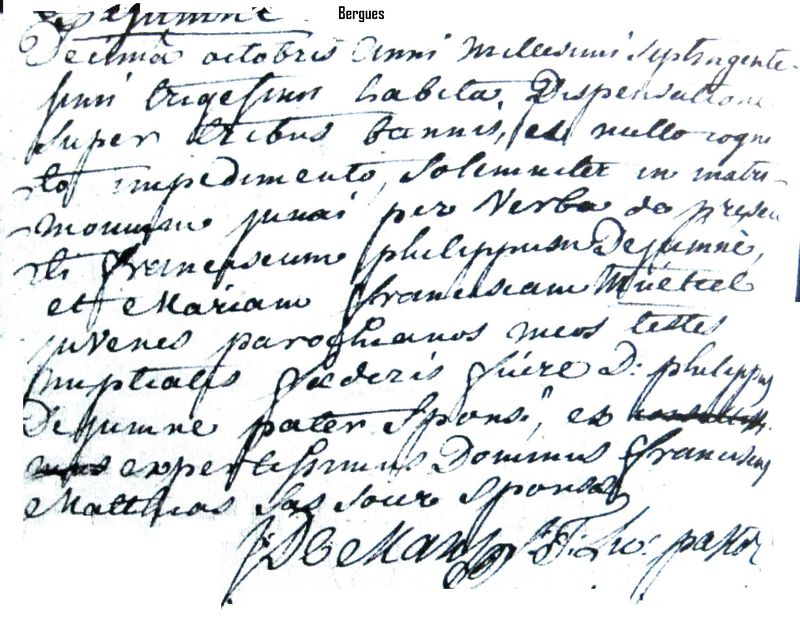 Bergues
Dejumnè
Decimâ octobris Anni millesimi septingente-
simi trigesimi habita Dispensatione
super tribus bannis, et nullo cogni
to impedimento, solemniter in matri-
monium junxi per Verba de presen
ti franciscum philippum Dejumnè,
et Mariam franciscam
juvenes parochianos meos testes
nuptialis foederis fuêre D: philippus
Dejumne pater Sponsi, et
expertissimus Dominus franciscus
Matthias Sponsæ
pastor